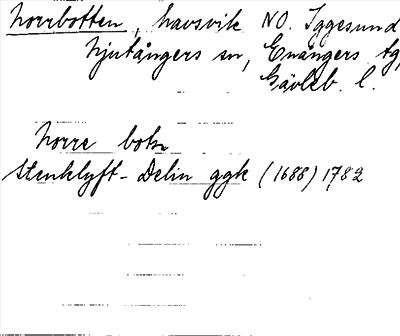 Norrbotten, havsvik NO. Iggesund
Njutångers sn, Enångers tg,
Gävleb. l.
Norre botn
Stenklyft-Delin ggk (1688) 1782